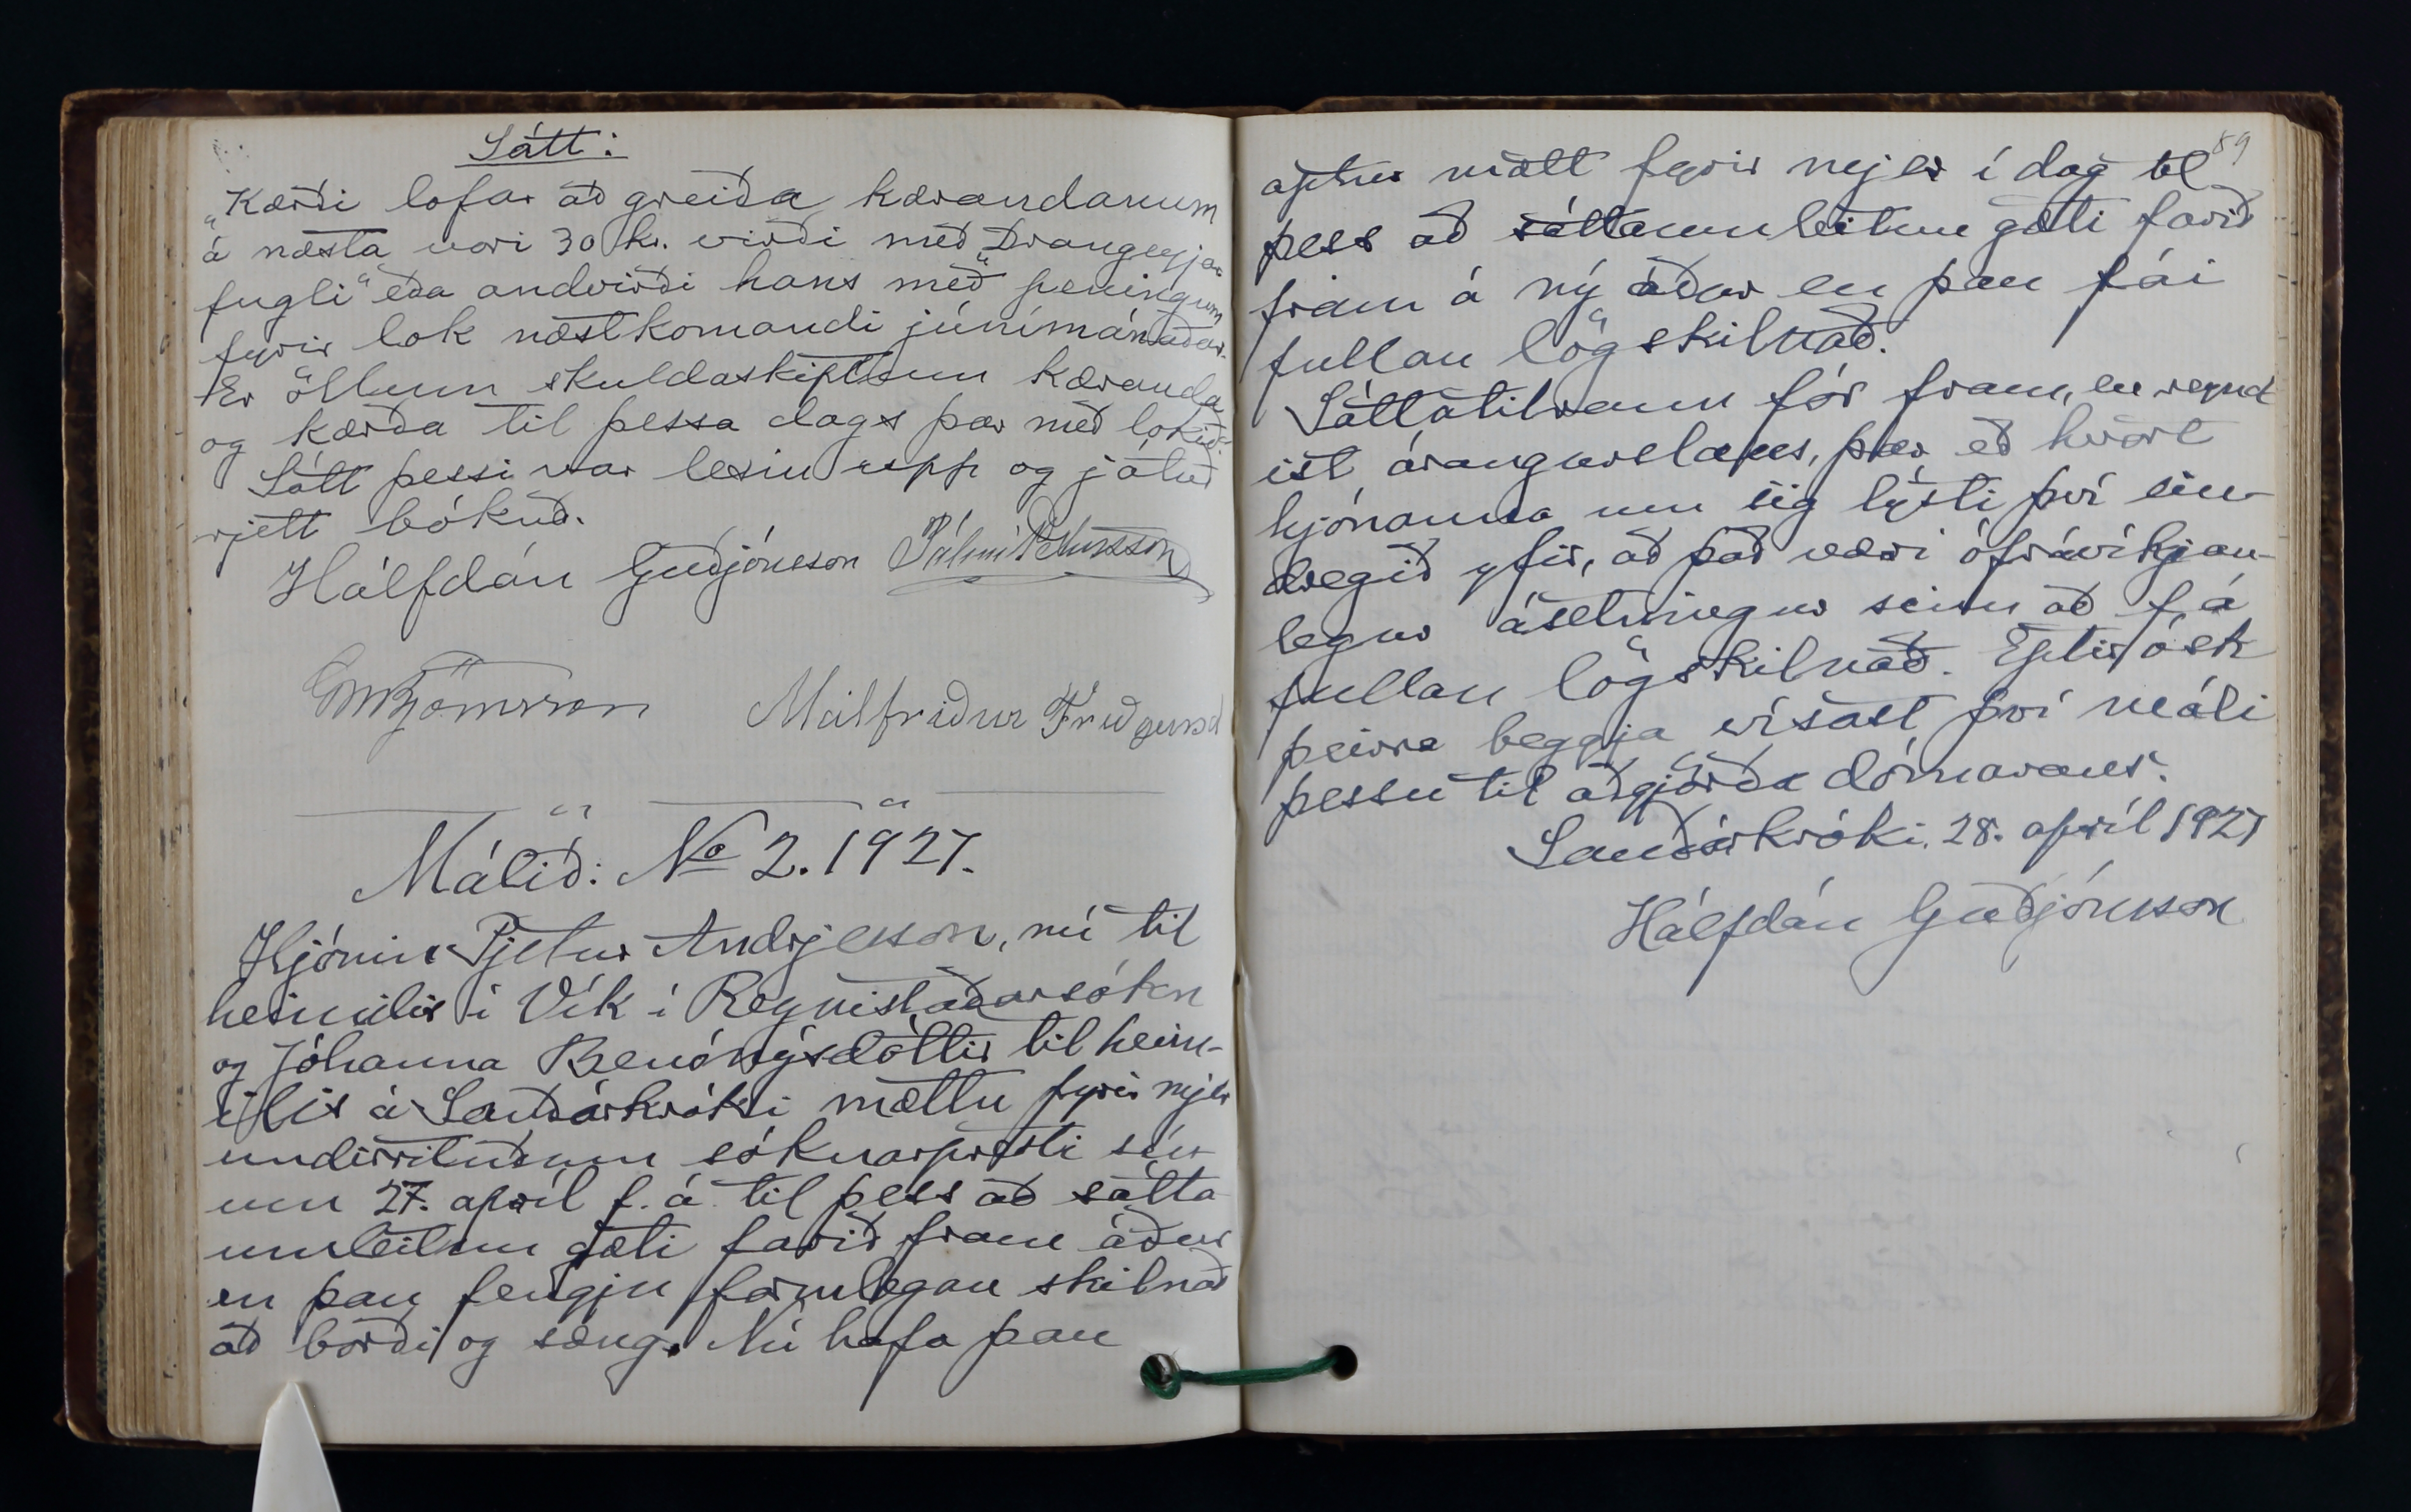 Sátt:
„Kærði lofar að greiða kærandanum
á næsta vori 30 kr. virði með „Drangeyjar
fugli“ eða andvirði hans með peningum
fyrir lok næstkomandi júnímánaðar.
Er öllum skuldaskiptum kæranda
og kærða til þessa dags þar með lokið“.
Sátt þessi var lesin upp og játuð
rjett bókuð.
Hálfdán Guðjónsson Pálmi Pétursson
Björnsson Málfríður Friðgeirsd
Málið: No 2. 1927.
Hjónin Pjetur Andrjesson, nú til
heimilis í Vík í Reynistaðarsókn
og Jóhanna Benónýsdóttir til heim-
ilis á Sauðárkróki mættu fyrir mjer
undirrituðum sóknarpresti sín-
um 27. apríl f. á. til þess að sátta
umleitun gæti farið fram áður
en þau fengju formlegan skilnað
að borði og sæng. Nú hafa þau
89
aptur mætt fyrir mjer í dag til
þess að sáttaumleitun gæti farið
fram á ný áður en þau fái
fullan lögskilnað.
Sáttatilraun fór fram, en reynd
ist árangurslaus, þar eð hvort
hjónanna um sig lýsti því ein-
dregið yfir, að það væri ófrávíkjan-
legur ásetningur sinn að fá
fullan lögskilnað. Eptir ósk
þeirra beggja vísast því máli
þessu til aðgjörða dómarans.
Sauðárkróki, 28. apríl 1927
Hálfdán Guðjónsson